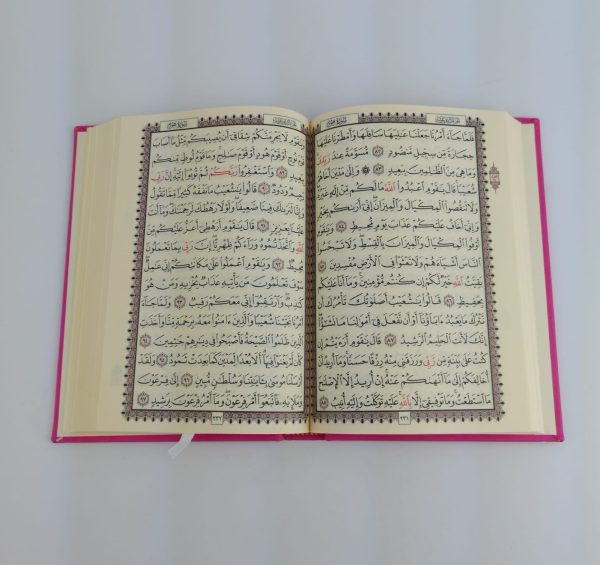 الجزء الثاني عشر سورة هود
فَلَمَّا جَاءَ أَمْرُنَا جَعَلْنَا عَالِيَهَا سَافِلَهَا وَأَمْطَرْنَا عَلَيْهَا
حِجَارَةً مِّن سِجِّيلٍ مَّنضُودٍ ٨٢ مُّسَوَّمَةً عِندَ رَبِّكَ
وَمَا هِيَ مِنَ الظَّالِمِينَ بِبَعِيدٍ ٨٣ وَإِلَىٰ مَدْيَنَ أَخَاهُمْ
شُعَيْبًا قَالَ يَاقَوْمِ اعْبُدُوا اللَّهَ مَا لَكُم مِّنْ إِلَٰهٍ غَيْرُهُ
وَلَا تَنقُصُوا الْمِكْيَالَ وَالْمِيزَانَ إِنِّي أَرَاكُم بِخَيْرٍ
وَإِنِّي أَخَافُ عَلَيْكُمْ عَذَابَ يَوْمٍ مُّحِيطٍ ٨٤ وَيَاقَوْمِ
أَوْفُوا الْمِكْيَالَ وَالْمِيزَانَ بِالْقِسْطِ وَلَا تَبْخَسُوا
النَّاسَ أَشْيَاءَهُمْ وَلَا تَعْثَوْا فِي الْأَرْضِ مُفْسِدِينَ ٨٥
بَقِيَّتُ اللَّهِ خَيْرٌ لَّكُمْ إِن كُنتُم مُّؤْمِنِينَ وَمَا أَنَا عَلَيْكُم
بِحَفِيظٍ ٨٦ قَالُوا يَاشُعَيْبُ أَصَلَوٰتُكَ تَأْمُرُكَ أَن
نَّتْرُكَ مَا يَعْبُدُ ءَابَاؤُنَا أَوْ أَن نَّفْعَلَ فِي أَمْوَالِنَا مَا نَشَاءُ
إِنَّكَ لَأَنتَ الْحَلِيمُ الرَّشِيدُ ٨٧ قَالَ يَاقَوْمِ أَرَءَيْتُمْ إِن
كُنتُ عَلَىٰ بَيِّنَةٍ مِّن رَّبِّي وَرَزَقَنِي مِنْهُ رِزْقًا حَسَنًا وَمَا أُرِيدُ أَنْ
أُخَالِفَكُمْ إِلَىٰ مَا أَنْهَاكُمْ عَنْهُ إِنْ أُرِيدُ إِلَّا الْإِصْلَاحَ
مَا اسْتَطَعْتُ وَمَا تَوْفِيقِي إِلَّا بِاللَّهِ عَلَيْهِ تَوَكَّلْتُ وَإِلَيْهِ أُنِيبُ ٨٨
٢٣١
الجزء الثاني عشر سورة هود
وَيَاقَوْمِ لَا يَجْرِمَنَّكُمْ شِقَاقِي أَن يُصِيبَكُم مِّثْلُ مَا أَصَابَ
قَوْمَ نُوحٍ أَوْ قَوْمَ هُودٍ أَوْ قَوْمَ صَالِحٍ وَمَا قَوْمُ لُوطٍ مِّنكُم
بِبَعِيدٍ ٨٩ وَاسْتَغْفِرُوا رَبَّكُمْ ثُمَّ تُوبُوا إِلَيْهِ إِنَّ رَبِّي
رَحِيمٌ وَدُودٌ ٩٠ قَالُوا يَاشُعَيْبُ مَا نَفْقَهُ كَثِيرًا مِّمَّا تَقُولُ
وَإِنَّا لَنَرَاكَ فِينَا ضَعِيفًا وَلَوْلَا رَهْطُكَ لَرَجَمْنَاكَ وَمَا أَنتَ
عَلَيْنَا بِعَزِيزٍ ٩١ قَالَ يَاقَوْمِ أَرَهْطِي أَعَزُّ عَلَيْكُم مِّنَ
اللَّهِ وَاتَّخَذْتُمُوهُ وَرَاءَكُمْ ظِهْرِيًّا إِنَّ رَبِّي بِمَا تَعْمَلُونَ
مُحِيطٌ ٩٢ وَيَاقَوْمِ اعْمَلُوا عَلَىٰ مَكَانَتِكُمْ إِنِّي عَامِلٌ
سَوْفَ تَعْلَمُونَ مَن يَأْتِيهِ عَذَابٌ يُخْزِيهِ وَمَنْ هُوَ
كَاذِبٌ وَارْتَقِبُوا إِنِّي مَعَكُمْ رَقِيبٌ ٩٣ وَلَمَّا جَاءَ
أَمْرُنَا نَجَّيْنَا شُعَيْبًا وَالَّذِينَ ءَامَنُوا مَعَهُ بِرَحْمَةٍ مِّنَّا وَأَخَذَتِ
الَّذِينَ ظَلَمُوا الصَّيْحَةُ فَأَصْبَحُوا فِي دِيَارِهِمْ جَاثِمِينَ ٩٤
كَأَن لَّمْ يَغْنَوْا فِيهَا أَلَا بُعْدًا لِّمَدْيَنَ كَمَا بَعِدَتْ ثَمُودُ ٩٥ وَلَقَدْ
أَرْسَلْنَا مُوسَىٰ بِـَٔايَاتِنَا وَسُلْطَانٍ مُّبِينٍ ٩٦ إِلَىٰ فِرْعَوْنَ
وَمَلَإِيهِ فَاتَّبَعُوا أَمْرَ فِرْعَوْنَ وَمَا أَمْرُ فِرْعَوْنَ بِرَشِيدٍ ٩٧
٢٣٢